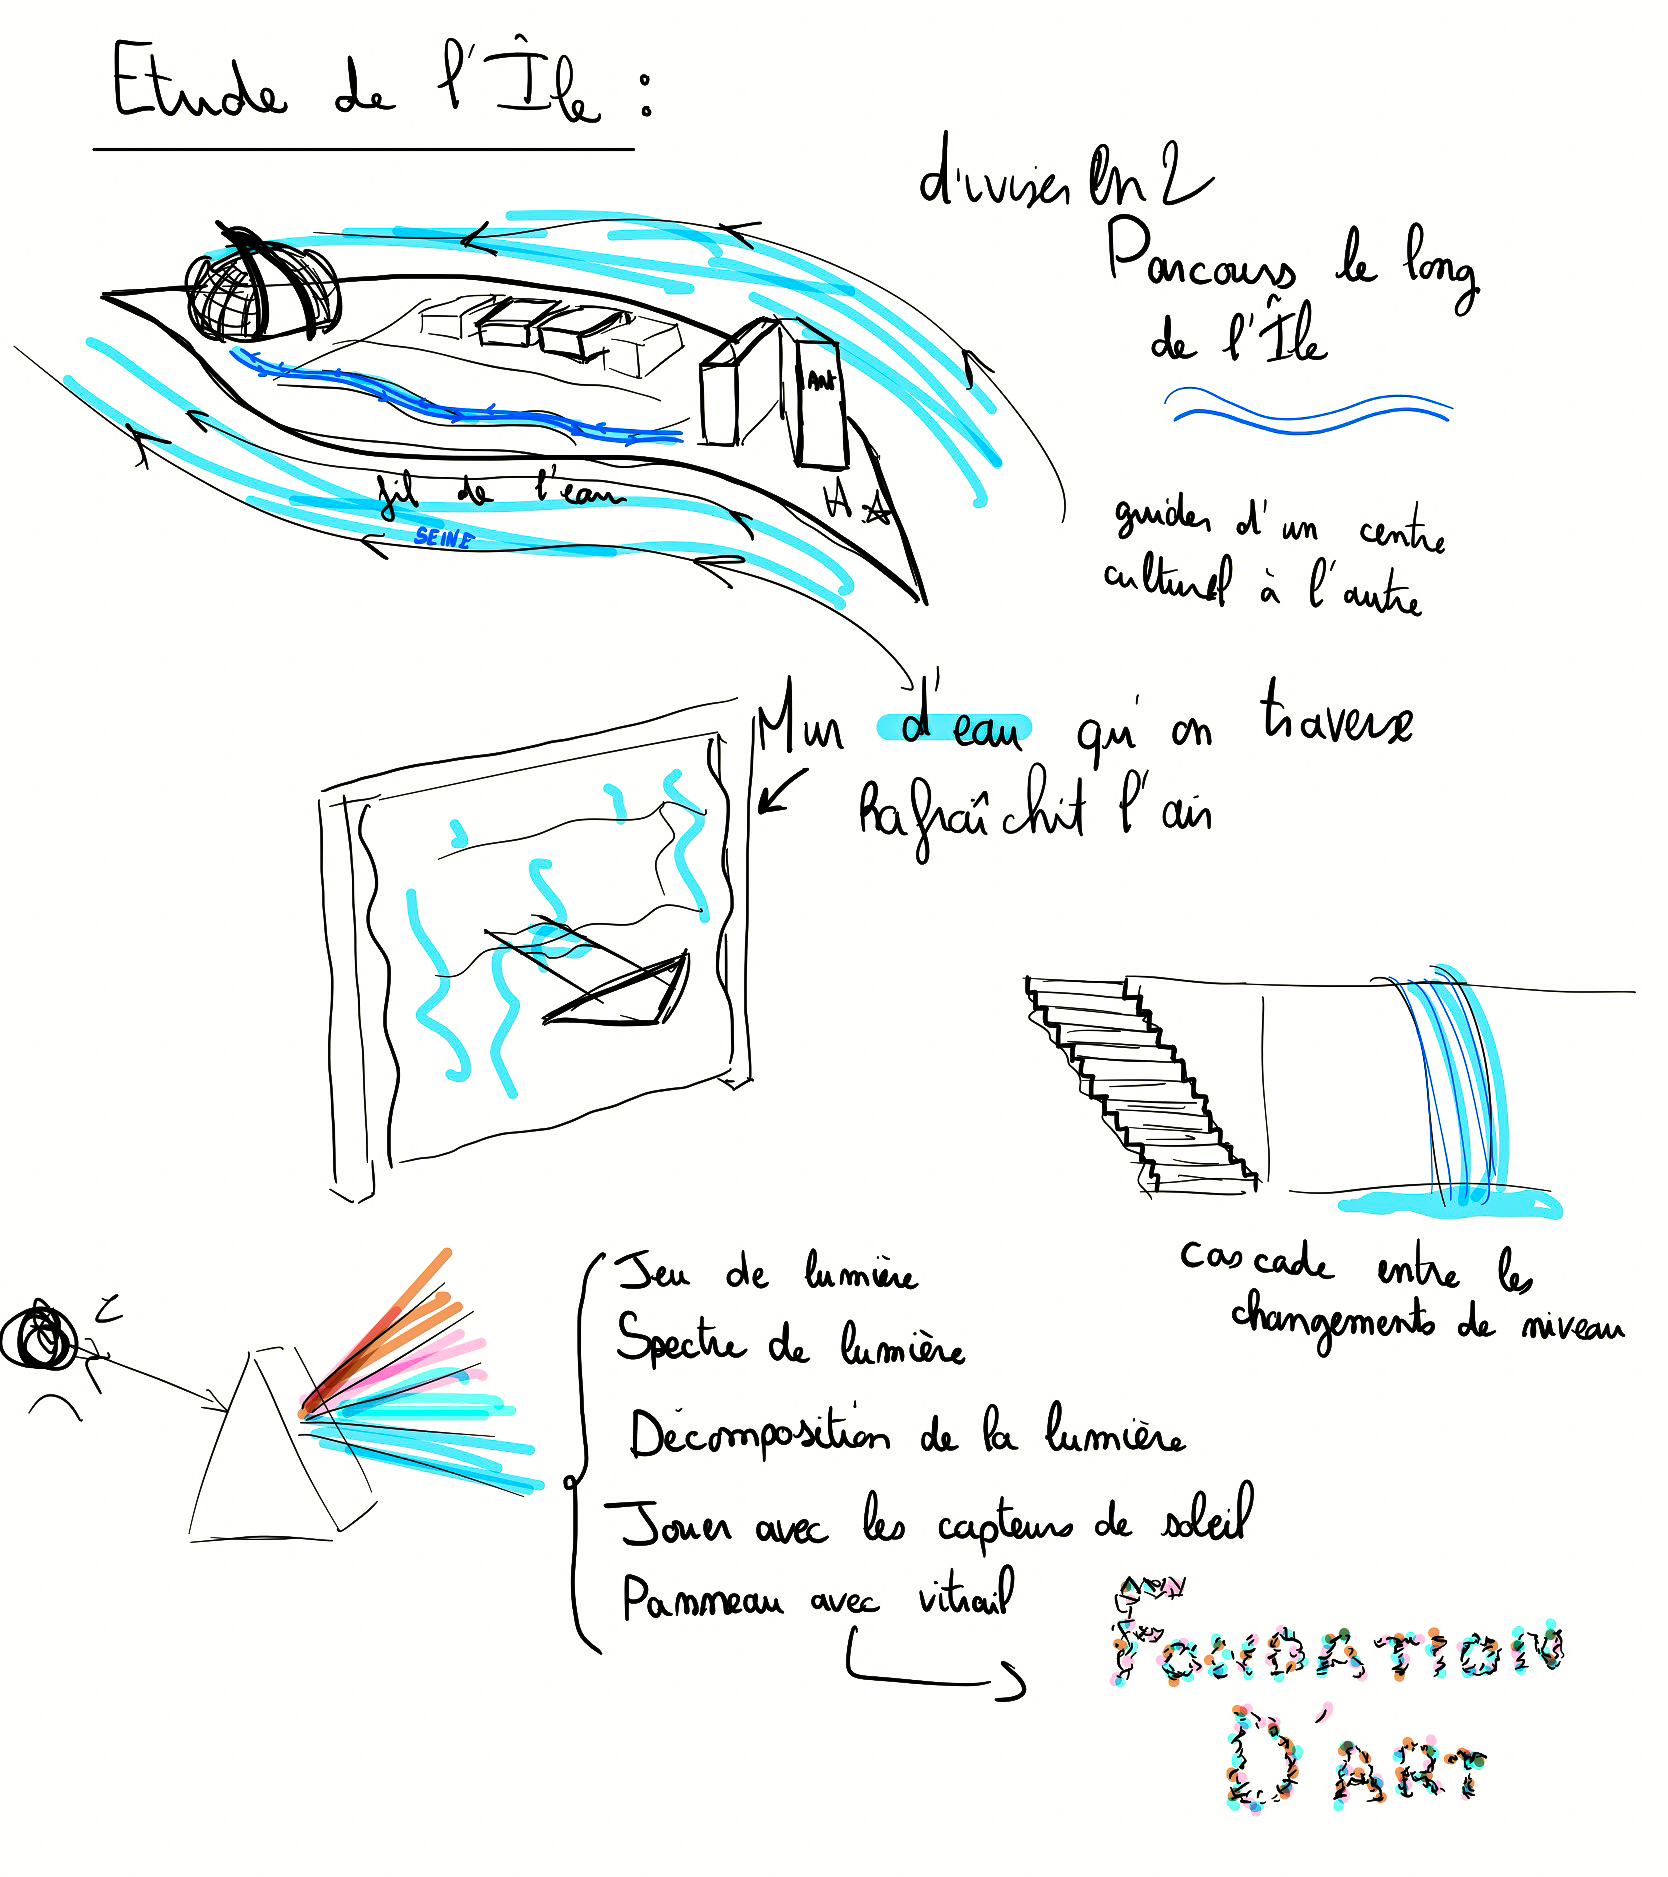 Etude de l'Île :
diviser en 2
Parcours le long
de l'Île
ART
fil de l'eau
SEINE
guider d'un centre
culturel à l'autre
Mur d'eau qu'on traverse
Rafraîchit l'air
cascade entre les
changements de niveau
Jeu de lumière
Spectre de lumière
Décomposition de la lumière
Jouer avec les capteurs de soleil
Panneau avec vitrail
FONDATION
D'ART